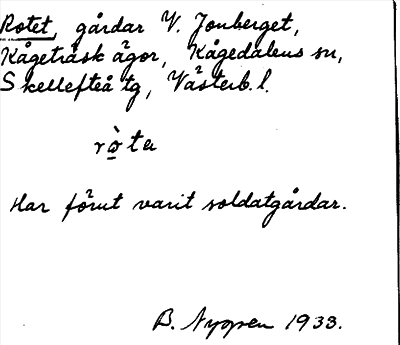 Rotet, gårdar V. Jonberget,
Kågeträsk ägor, Kågedalens sn,
Skellefteå tg, Västerb. l.
rò̲ta
Har förut varit soldatgårdar.
B. Nyopen 1933.